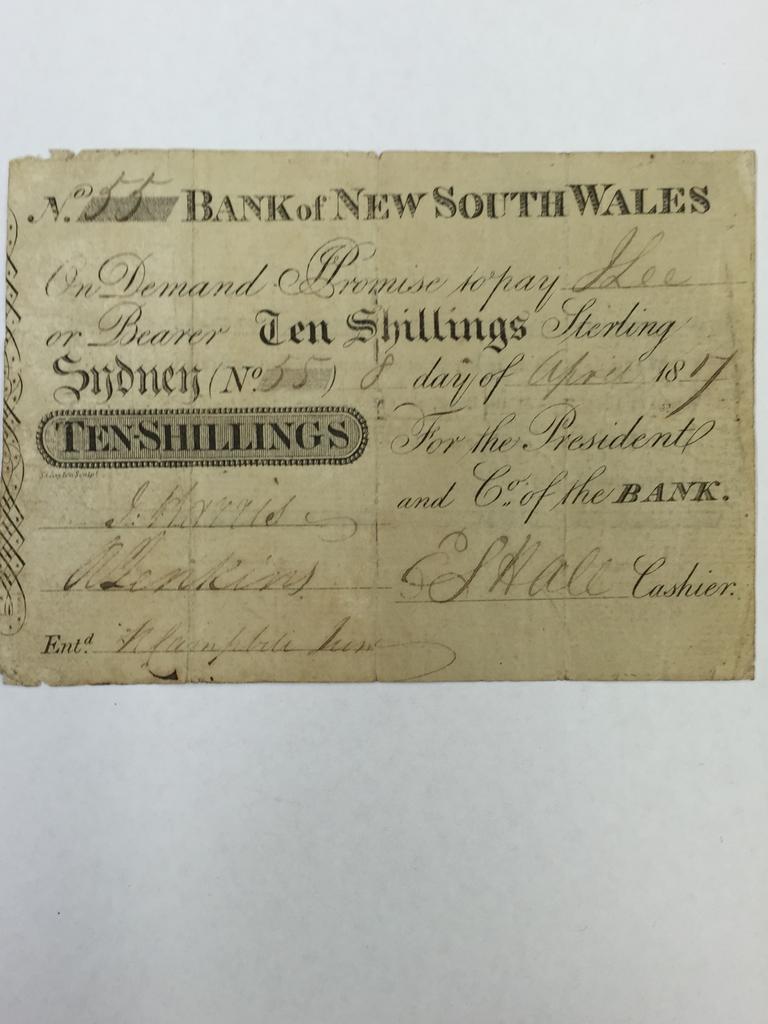 No. 55 BANK of NEW SOUTH WALES
On Demand I Promise to pay J Lee
or Bearer Ten Shillings Sterling
Sydney (No. 55) 8 day of April 1817
TEN-SHILLINGS For the President
and Co. of the BANK.
J. Harris
R Jenkins E S Hall Cashier.
Entd R Campbell Junr